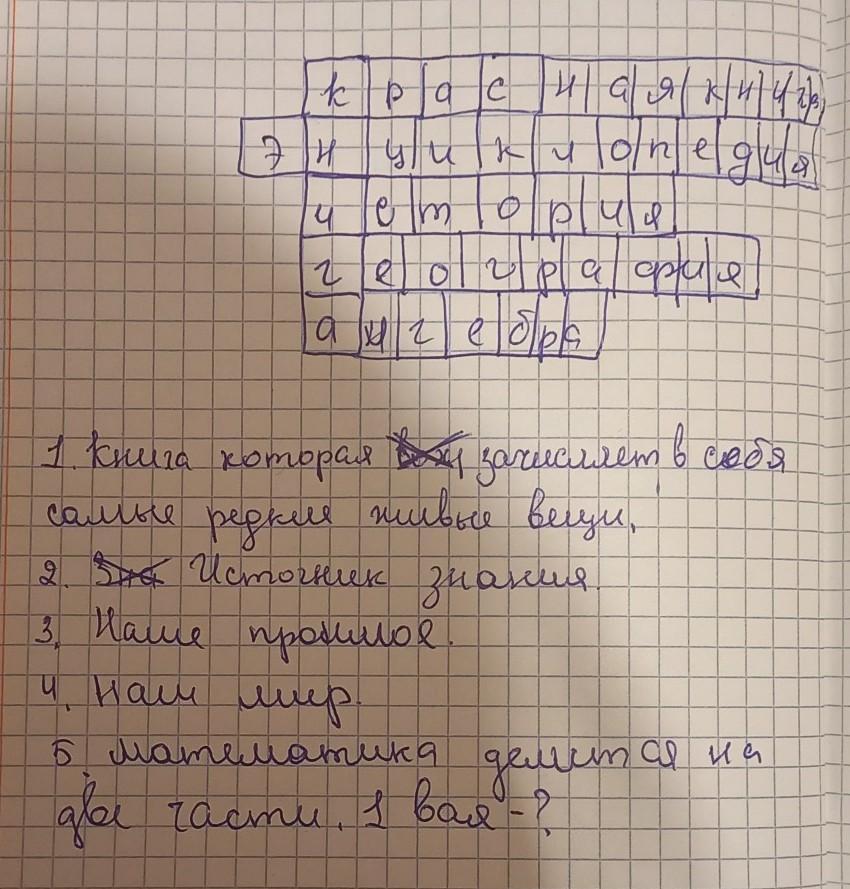 красная книга
энциклопедия
история
география
алгебра
1. Книга которая зачисляет в себя
самые редкие живые вещи.
2. Источник знания.
3. Наше прошлое.
4. Наш мир.
5. математика делится на
две части. 1 вая -?